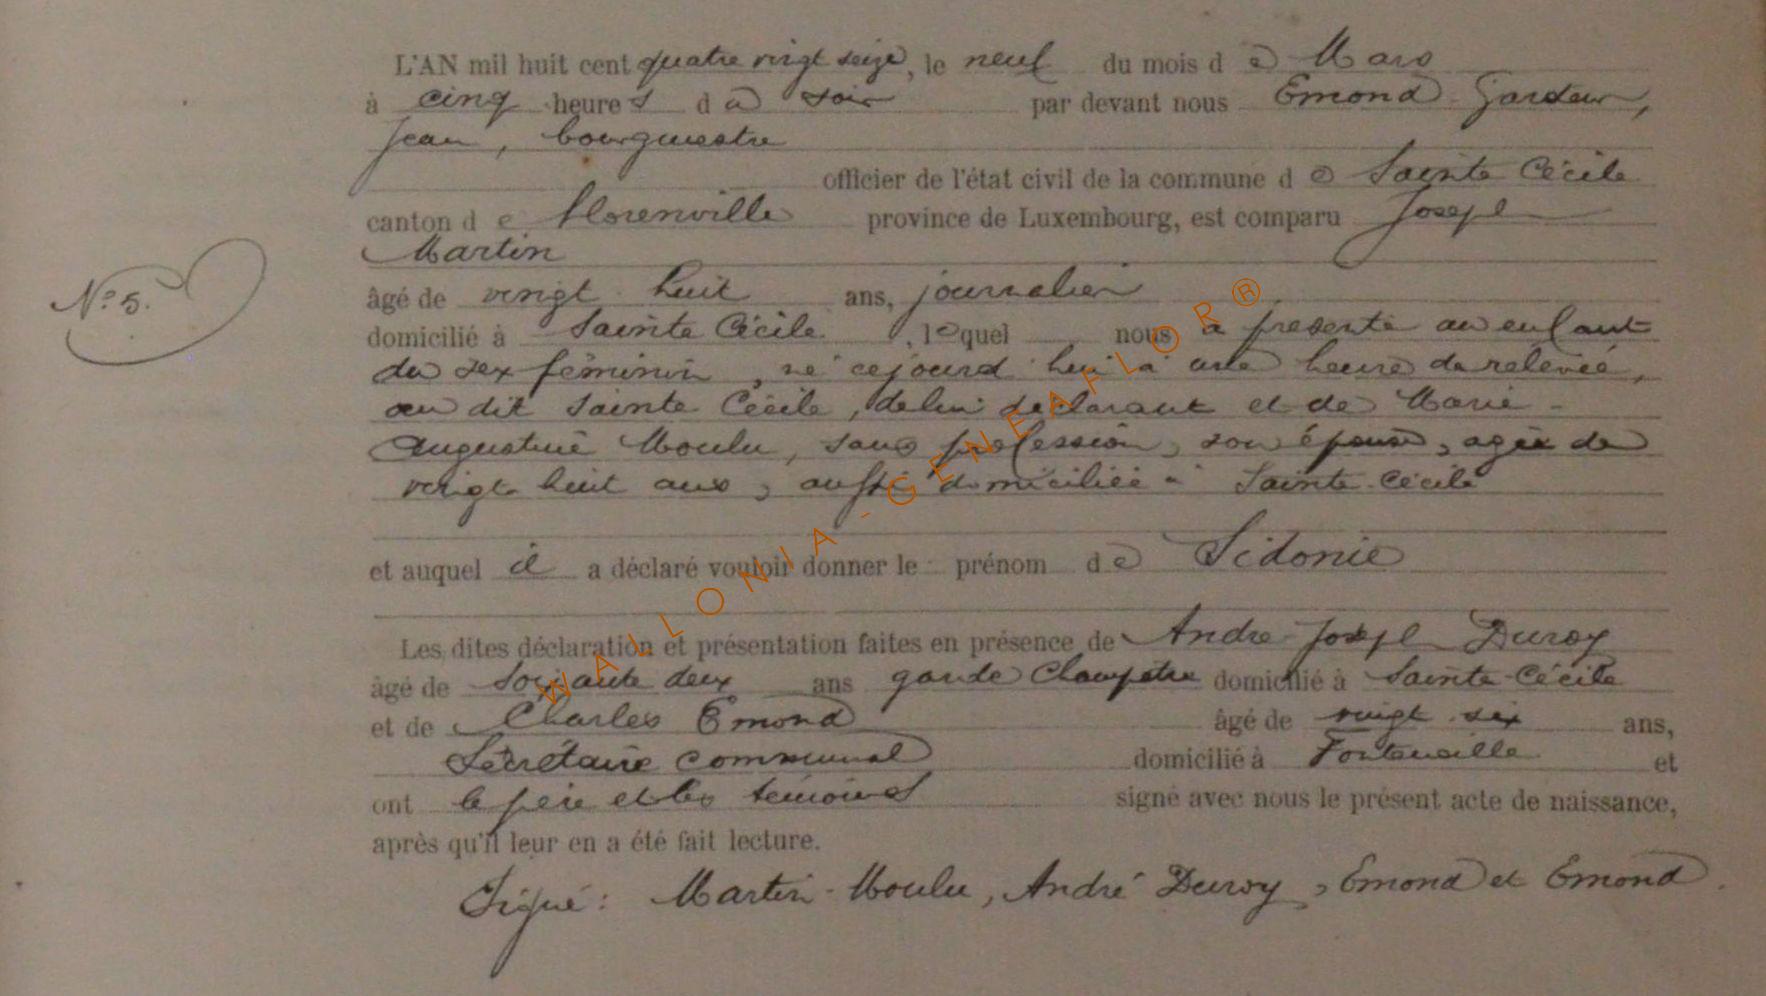 L'AN mil huit cent quatre vingt seize, le neuf du mois de Mars
à cinq heures du soir par devant nous Emond Gardeur,
Jean, bourgmestre
officier de l'état civil de la commune de Sainte Cécile
canton de Florenville province de Luxembourg, est comparu Joseph
Martin
N° 5.
âgé de vingt huit ans, journalier
domicilié à Sainte Cécile, lequel nous a présenté un enfant
du sex féminin, né cejourd'hui à une heure de relevée,
au dit Sainte Cécile, de lui déclarant et de Marie-
Augustine Moulu, sans profession, son épouse, agée de
vingt huit ans, aussi domiciliée à Sainte-Cécile
et auquel il a déclaré vouloir donner le prénom de Sidonie
Les dites déclaration et présentation faites en présence de André Joseph Duroy
âgé de soixante deux ans garde champetre domicilié à Sainte-Cécile
et de Charles Emond âgé de vingt-six ans,
Secrétaire communal domicilié à Fontenoille et
ont le père et les témoins signé avec nous le présent acte de naissance,
après qu'il leur en a été fait lecture.
Signé: Martin-Moulu, André Duroy, Emond et Emond.
WALLONIA-GENEAFLOR®